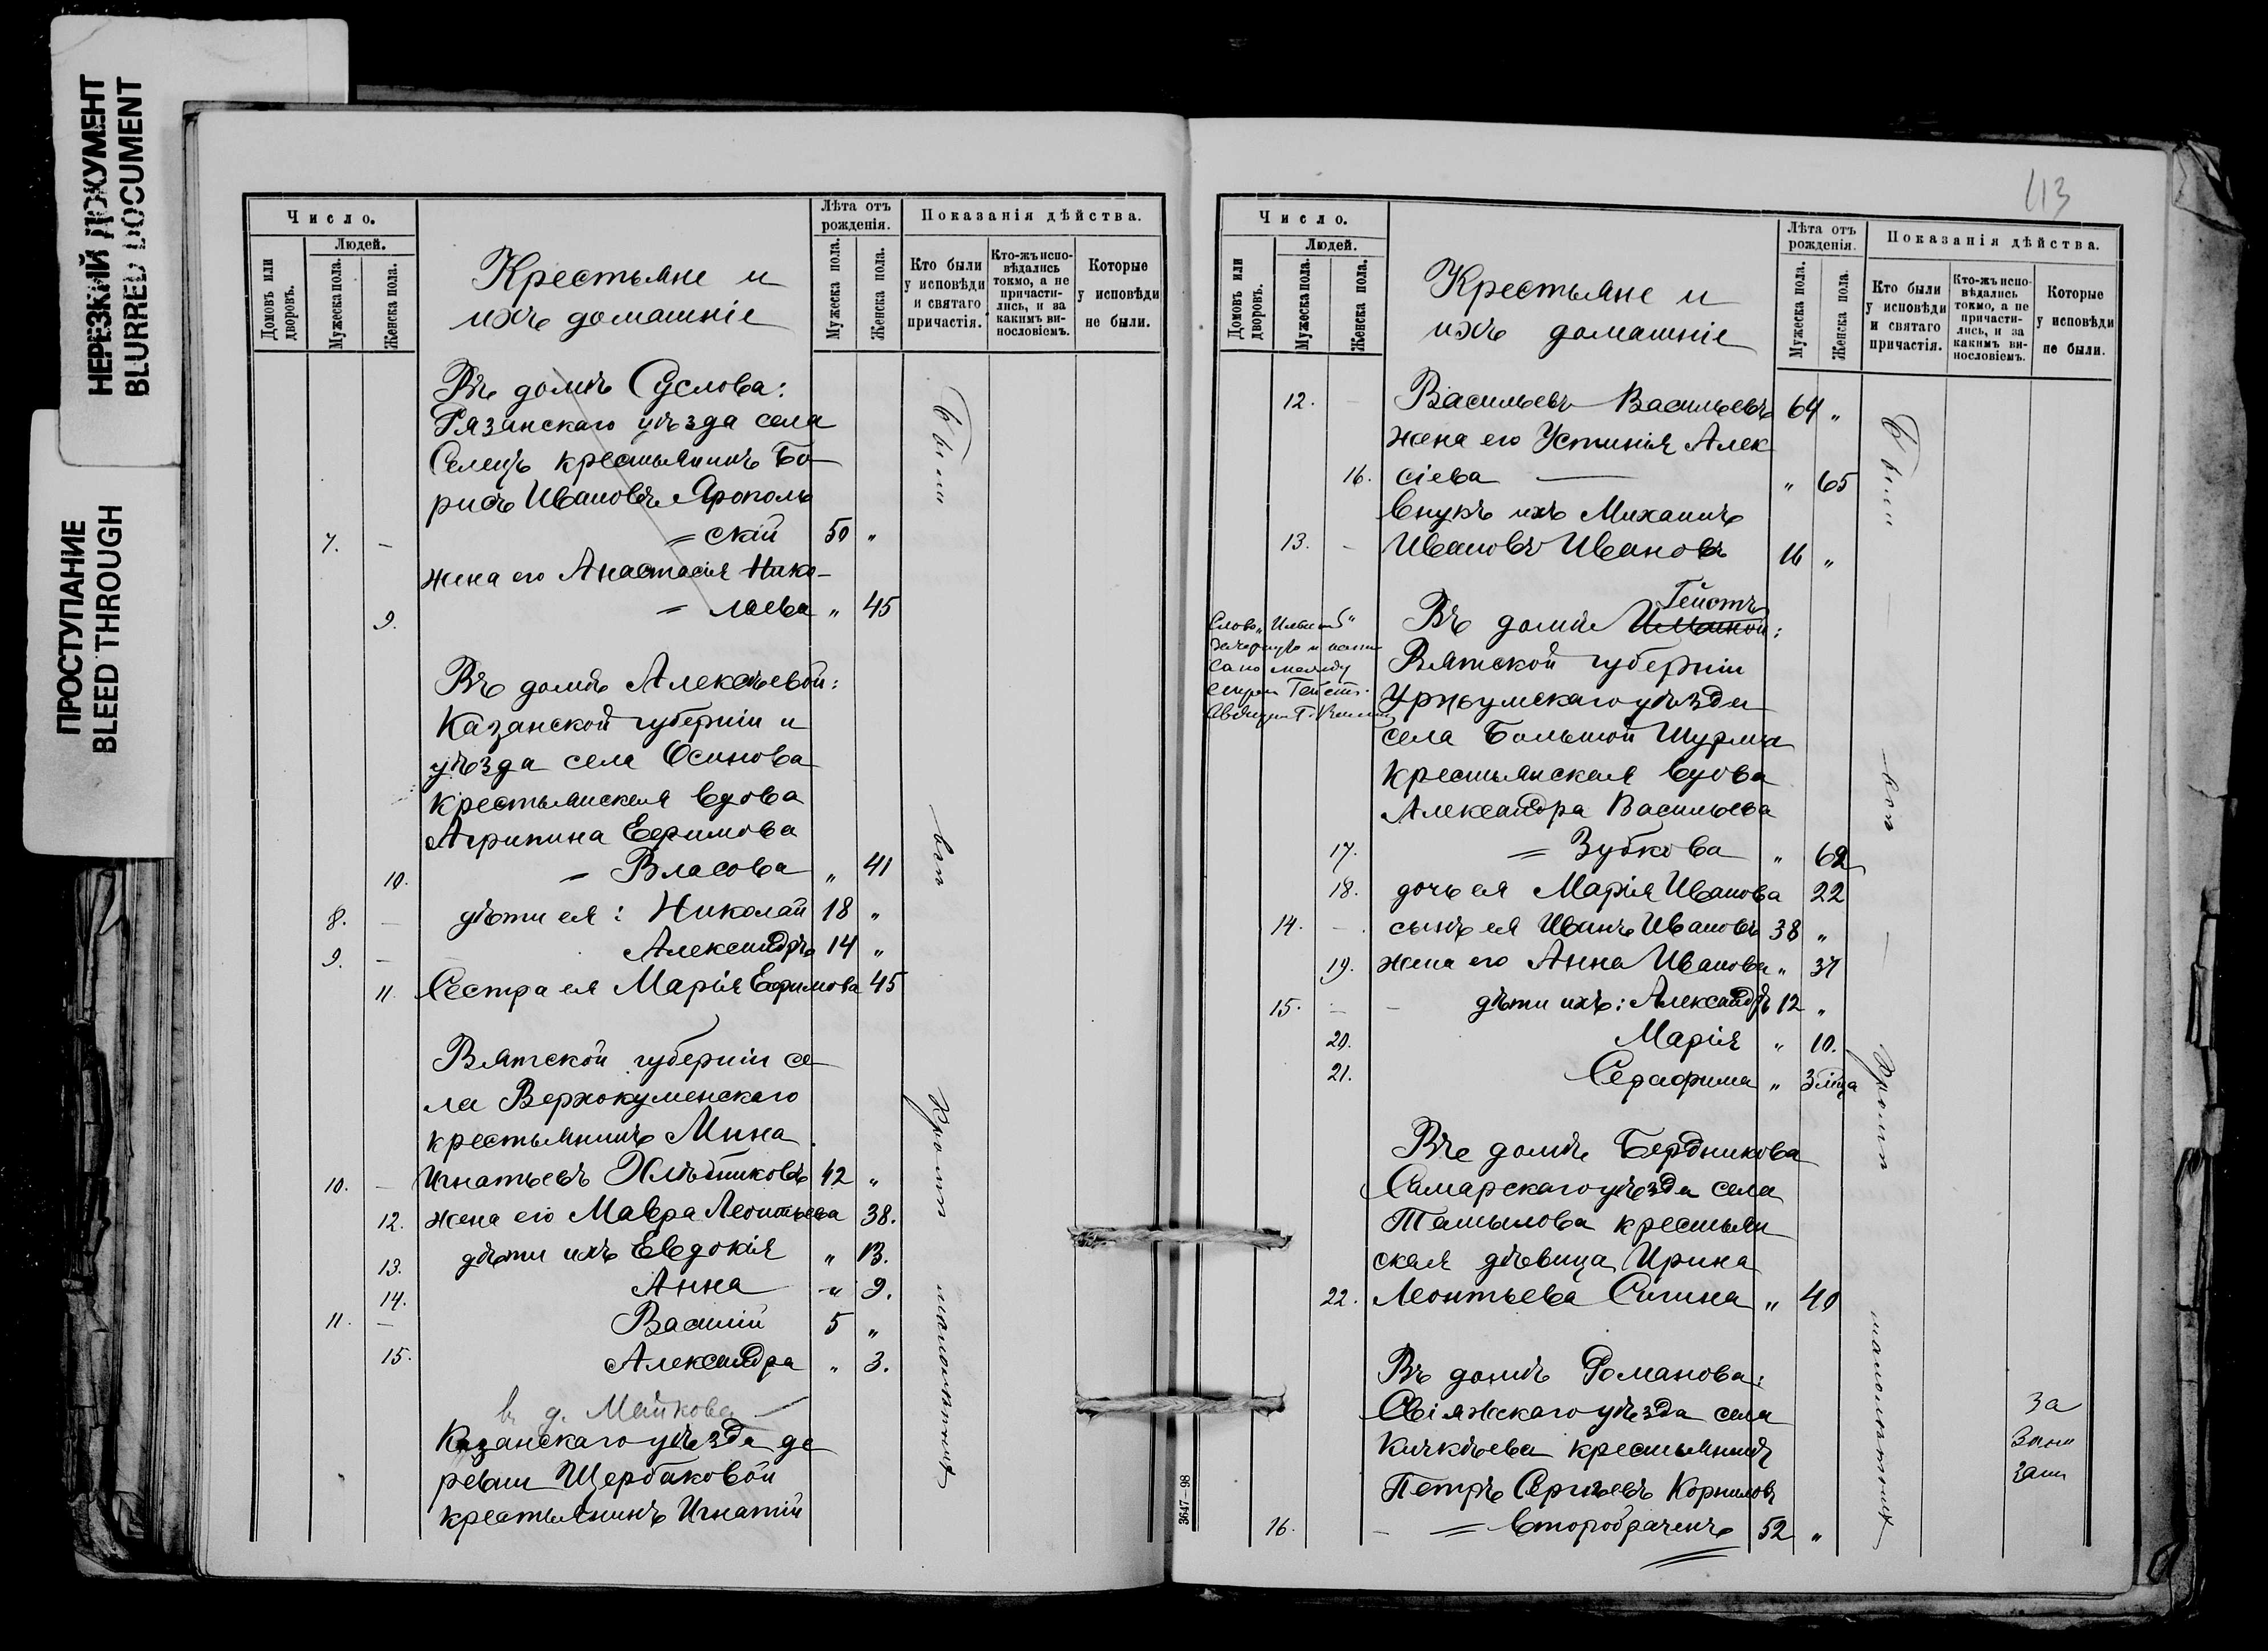 НЕРЕЗКИЙ ДОКУМЕНТ
BLURRED DOCUMENT
ПРОСТУПАНИЕ
BLEED THROUGH
Число.
Домовъ или дворовъ.
Людей.
Мужеска пола.
Женска пола.
Крестьяне и
ихъ домашніе
Лѣта отъ рожденія.
Мужеска пола.
Женска пола.
Показанія дѣйства.
Кто были у исповѣди и святаго причастія.
Кто-жъ исповѣдались токмо, а не причастились, и за какимъ винословіемъ.
Которые у исповѣди не были.
Въ домѣ Суслова:
Рязанскаго уѣзда села
Селецъ крестьянинъ Бо-
рисъ Ивановъ Ярополь
7. - = скій 50 "
жена его Анастасія Нико-
9. = лаева " 45
Въ домѣ Алексѣевой:
Казанской губерніи и
уѣзда села Осинова
крестьянская вдова
Агрипина Ефимова
10. = Власова " 41
8. - дѣти ея: Николай 18 "
9. - Александръ 14 "
11. Сестра ея Марія Ефимова 45
Вятской губерніи се
ла Верхокуменскаго
крестьянинъ Мина
10. - Игнатьевъ 42 "
12. жена его Мавра Леонтьева 38.
13. дѣти ихъ Евдокія " 13.
14. Анна " 9.
11. - Василій 5 "
15. Александра " 3.
в д. Майкова
Казанскаго уѣзда де
ревни Щербаковой
крестьянинъ Игнатій
Были
всѣ
кромѣ
малолѣтнихъ
113
Число.
Домовъ или дворовъ.
Людей.
Мужеска пола.
Женска пола.
Крестьяне и
ихъ домашніе
Лѣта отъ рожденія.
Мужеска пола.
Женска пола.
Показанія дѣйства.
Кто были у исповѣди и святаго причастія.
Кто-жъ исповѣдались токмо, а не причастились, и за какимъ винословіемъ.
Которые у исповѣди не были.
12. - Васильевъ Васильевъ 64 "
жена его Устинія Алек
16. сіева " 65
внукъ ихъ Михаилъ
13. - Ивановъ Ивановъ 16 "
Гейстъ
Въ домѣ Ильиной:
Слово "
зачеркнуто и напи
сано между
строкъ Гейстъ.
Вятской губерніи
Уржумскаго уѣзда
села Большой Шурмы
крестьянская вдова
Александра Васильева
17. = Зубкова " 62
18. дочь ея Марія Иванова 22
14. - сынъ ея Иванъ Ивановъ 38 "
19. жена его Анна Иванова " 37
15. - дѣти ихъ: Александръ 12 "
20. Марія " 10.
21. Серафима " 3 мѣца
Въ домѣ Бердникова
Самарскаго уѣзда села
крестьян
ская дѣвица Ирина
22. Леонтьева " 40
Въ домѣ Романова:
Свіяжскаго уѣзда села
крестьянинъ
Петръ Сергѣевъ Корниловъ
16. - = второбрачень 52 "
Были
всѣ
кромѣ
малолѣтнихъ
за
3647—98